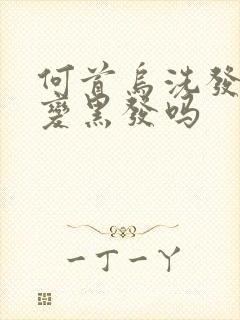 何首烏洗發
變黑發嗎
一丁一丫